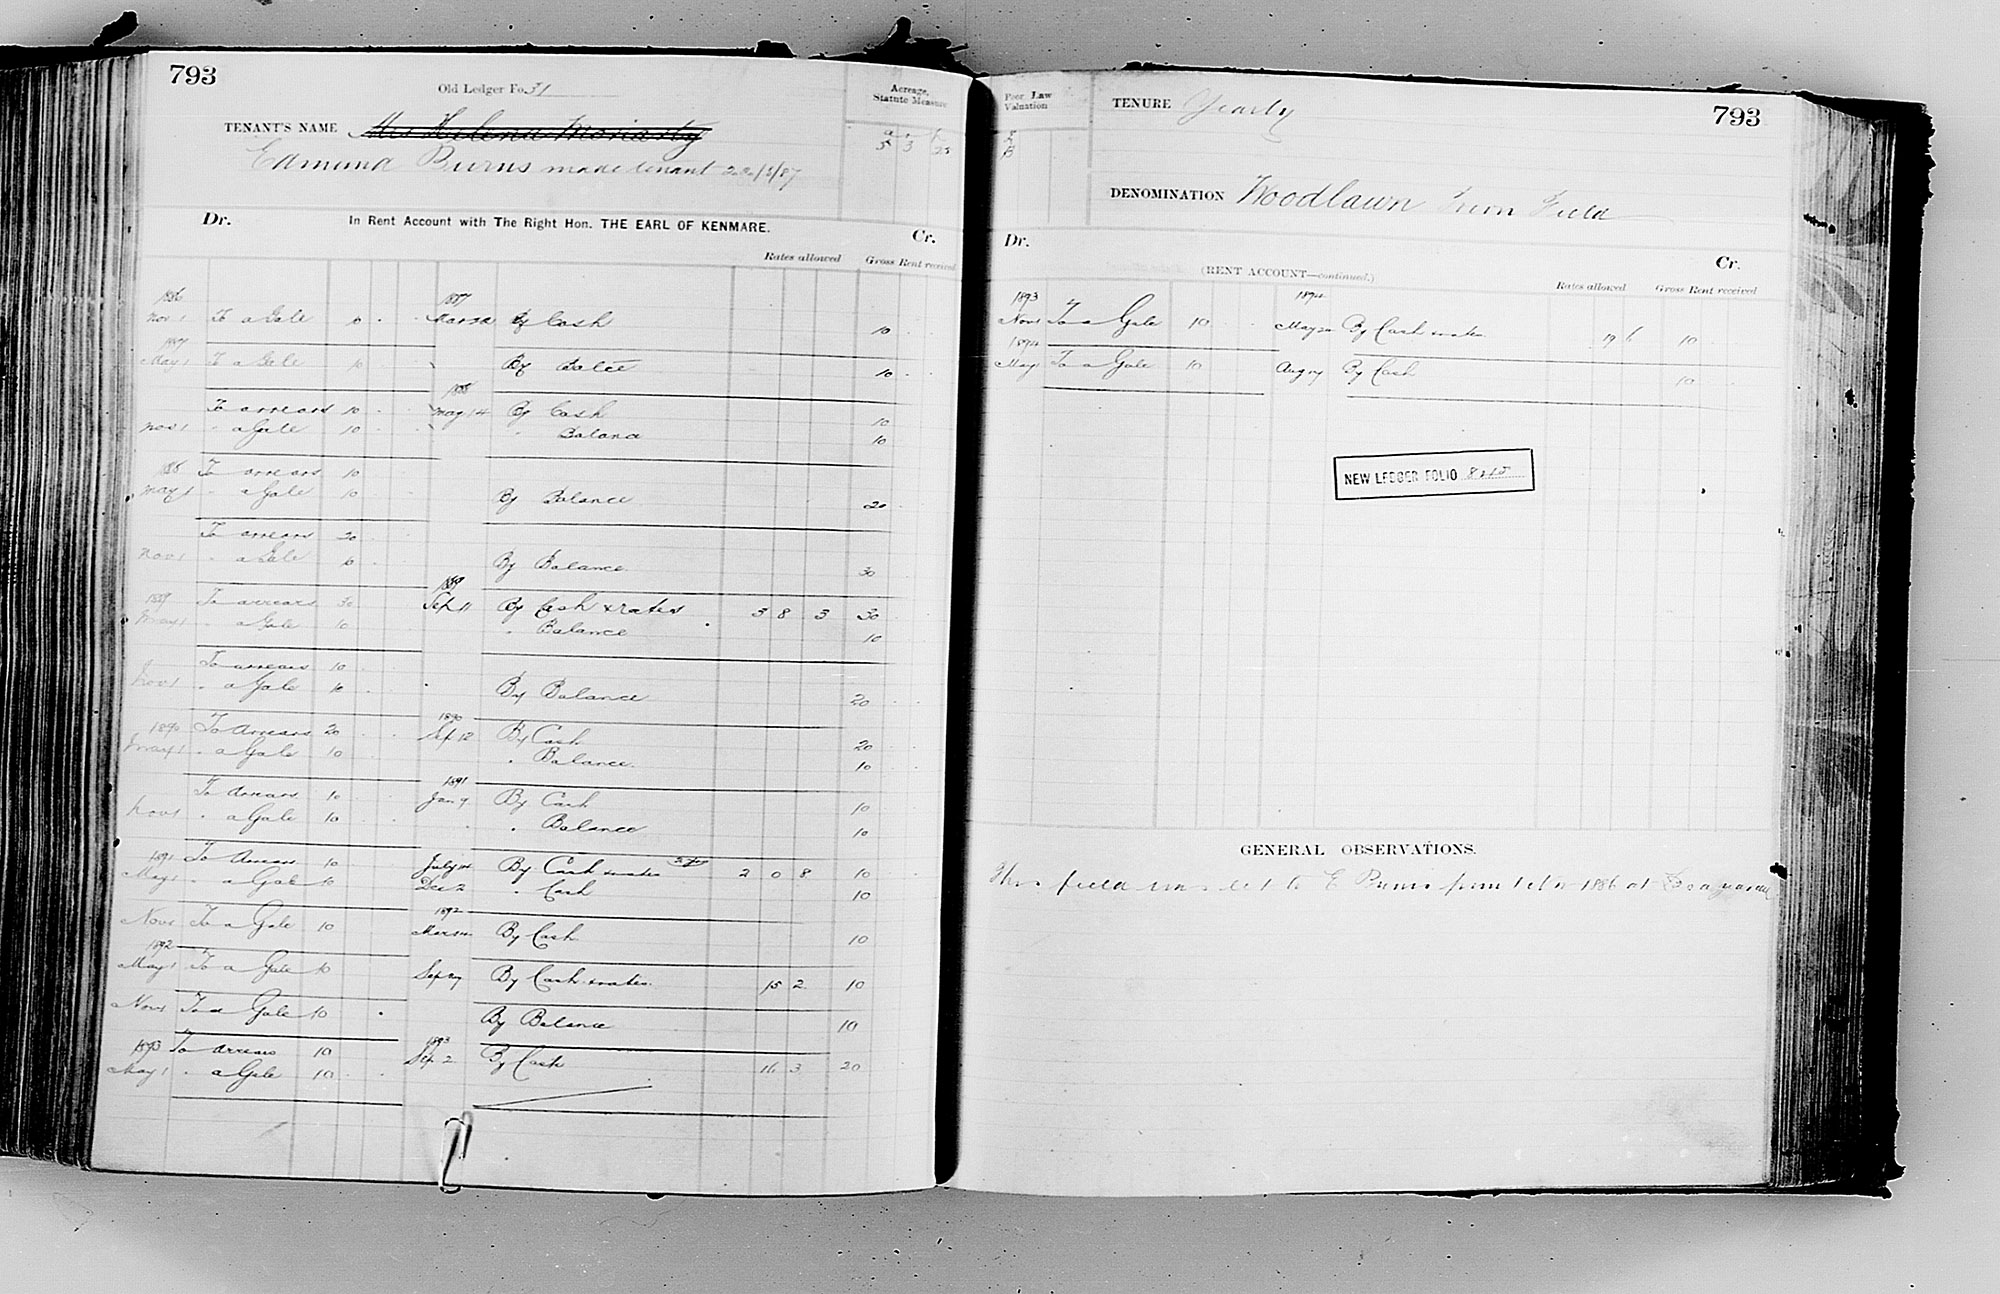 793
Old Ledger Fo. 31
Acreage, Statute Measure
TENANT'S NAME Mrs Helena Moriarty
a r p
5 3 25
Edmund Burns made tenant
Dr. In Rent Account with The Right Hon. THE EARL OF KENMARE. Cr.
Rates allowed Gross Rent received
1886 1887
Nov 1 To a Gale 10 By Cash 10
1887
May 1 To a Gale 10 By Balce 10
1888
To arrears 10 May 14 By Cash 10
Nov 1 " a Gale 10 " Balance 10
1888 To arrears 10
May 1 " a Gale 10 By Balance 20
To arrears 20
Nov 1 " a Gale 10 By Balance 30
1889
1889 To arrears 30 Sep 11 By Cash & rates 3 8 3 30
May 1 " a Gale 10 " Balance 10
To arrears 10
Nov 1 " a Gale 10 By Balance 20
1890
1890 To Arrears 20 Sep 12 By Cash 20
May 1 " a Gale 10 " Balance 10
1891
To Arrears 10 Jan 9 By Cash 10
Nov 1 " a Gale 10 " Balance 10
1891 To Arrears 10 July By Cash & rates 2 0 8 10
May 1 " a Gale 10 Dec 2 " Cash 10
1892
Nov 1 To a Gale 10 Mar By Cash 10
1892
May 1 To a Gale 10 Sep By Cash & rates 15 2 10
Nov 1 To a Gale 10 By Balance 10
1893
1893 To Arrears 10 Sep 2 By Cash 16 3 20
May 1 " a Gale 10
Poor Law Valuation
TENURE Yearly
793
DENOMINATION Woodlawn Field
Dr. (RENT ACCOUNT—continued.) Cr.
Rates allowed Gross Rent received
1893 1894
Nov 1 To a Gale 10 May By Cash & rates 19 6 10
1894
May 1 To a Gale 10 Aug By Cash 10
NEW LEDGER FOLIO
GENERAL OBSERVATIONS.
This field was let to E Burns from 1st 1886 at